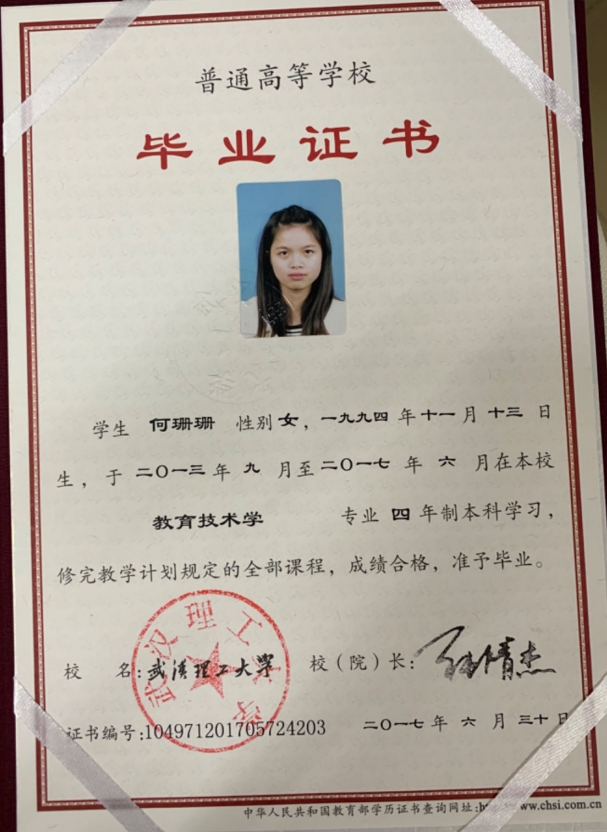 普通高等学校
毕业证书
学生 何珊珊 性别 女，一九九四 年 十一 月 十三 日
生，于 二〇一三 年 九 月至 二〇一七 年 六 月在本校
教育技术学 专业 四 年制本科学习，
修完教学计划规定的全部课程，成绩合格，准予毕业。
校 名：武汉理工大学 校（院）长：
武汉理工大学
证书编号：104971201705724203 二〇一七 年 六 月 三十 日
中华人民共和国教育部学历证书查询网址：www.chsi.com.cn